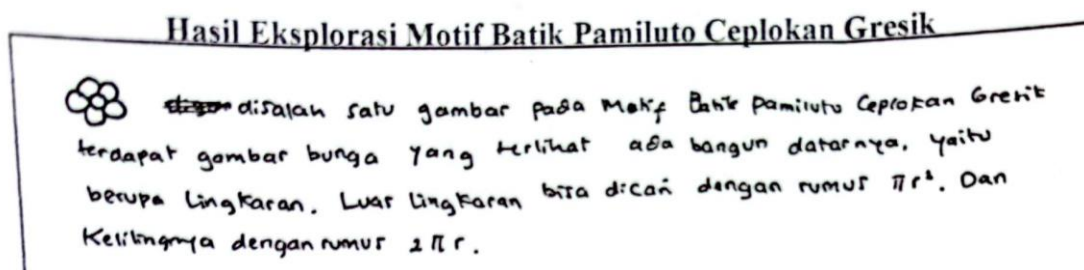 Hasil Eksplorasi Motif Batik Pamiluto Ceplokan Gresik
disalah satu gambar pada Motif Batik Pamiluto Ceplokan Gresik
terdapat gambar bunga yang terlihat ada bangun datarnya, yaitu
berupa Lingkaran. Luas Lingkaran bisa dicari dengan rumus πr². Dan
Kelilingnya dengan rumus 2πr.